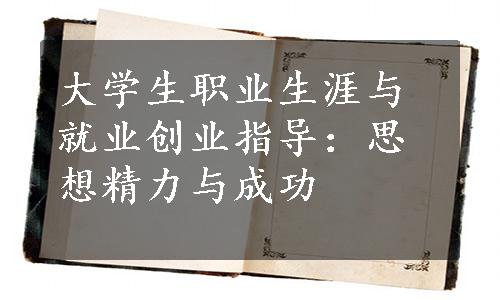 大学生职业生涯与
就业创业指导：思
想精力与成功